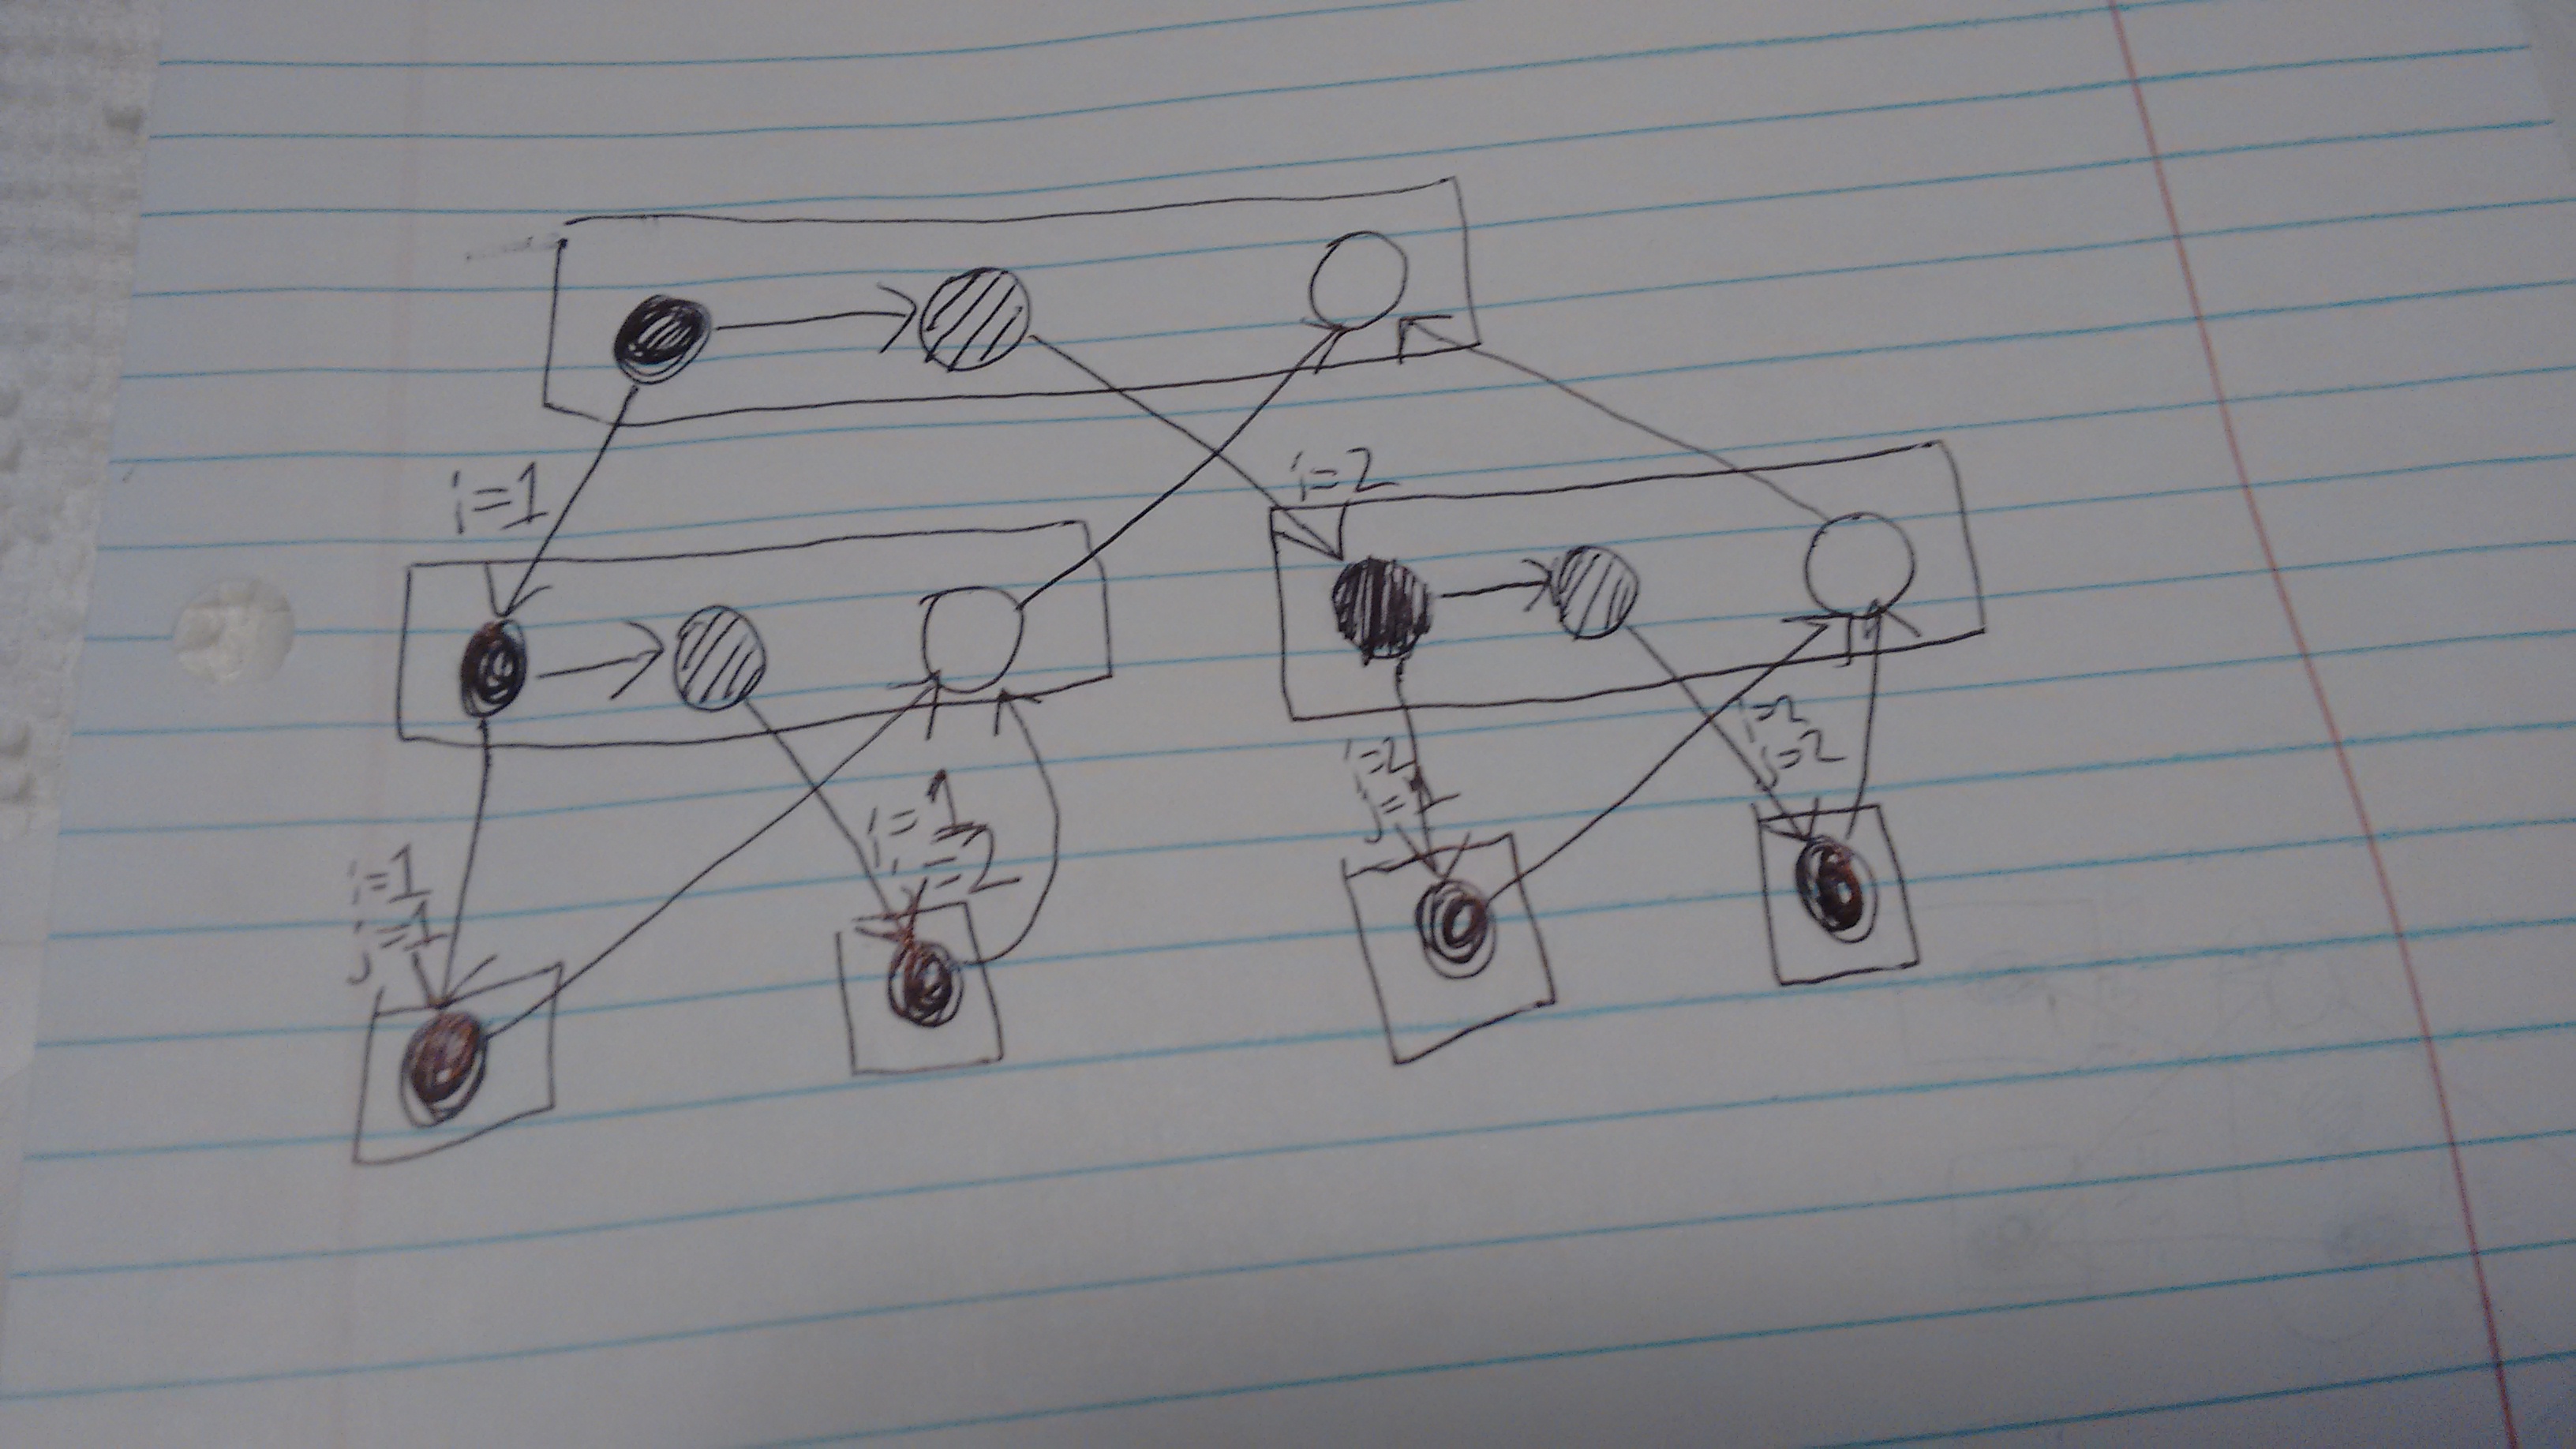 i=1
i=2
i=1
j=1
i=1
j=2
i=2
j=1
i=2
j=2